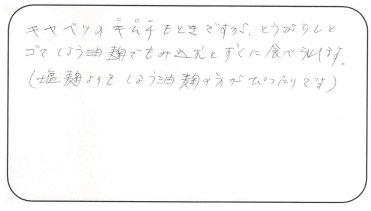 キャベツのキムチもどきですが、とうがらしと
ゴマしょう油麹でもみ込むとすぐに食べられます。
(塩麹よりもしょう油麹の方がぴったりです)